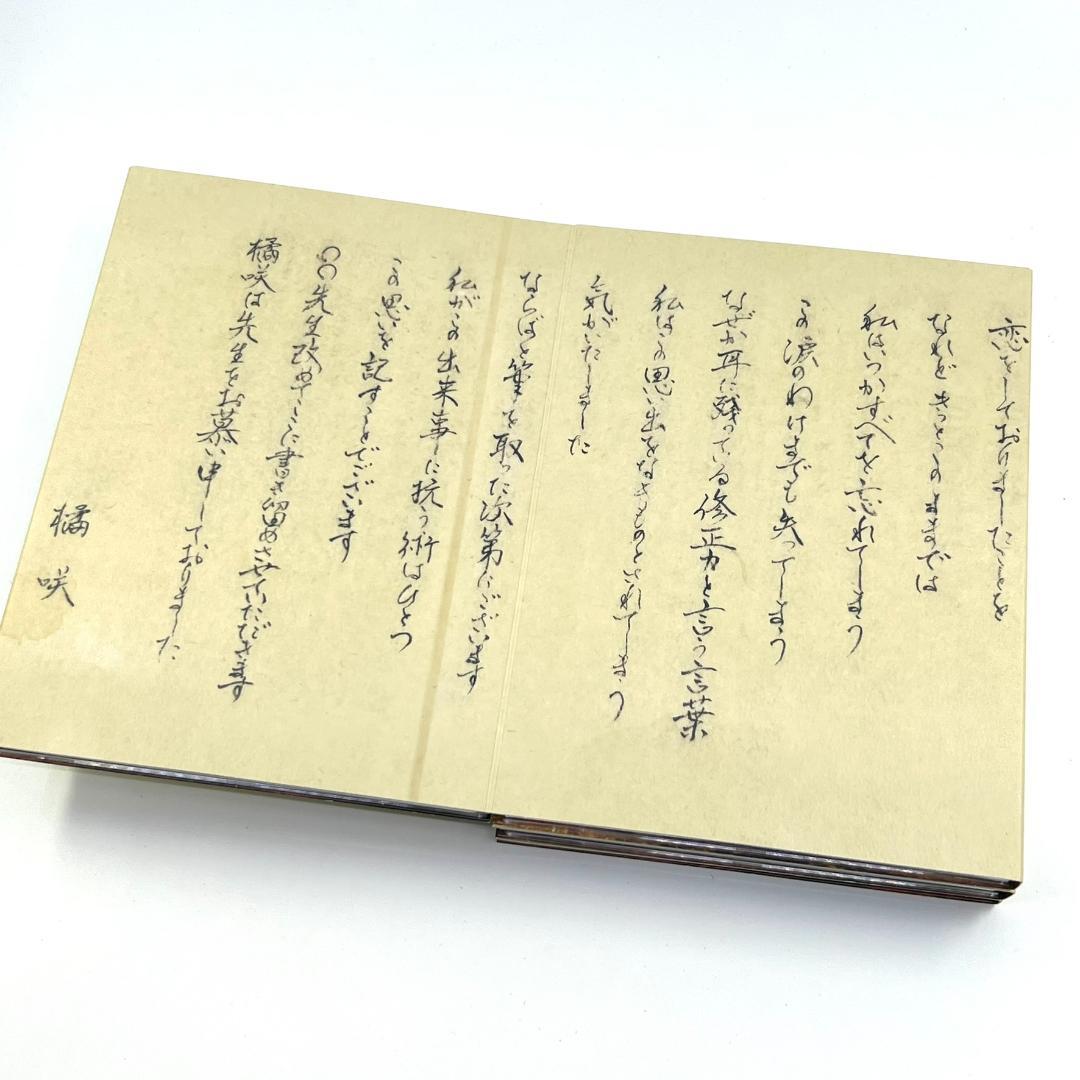 恋をしておりましたことを
なれどきっとこのままでは
私はいつかすべてを忘れてしまう
この涙のわけまでも失ってしまう
なぜか耳に残っている修正力と言う言葉
私はこの思い出をなきものとされてしまう
気がいたしました
ならばと筆を取った次第にございます
私がこの出来事に抗う術はひとつ
この思いを記すことでございます
〇〇先生改めてここに書き留めさせていただきます
橘咲は先生をお慕い申しておりました
橘 咲